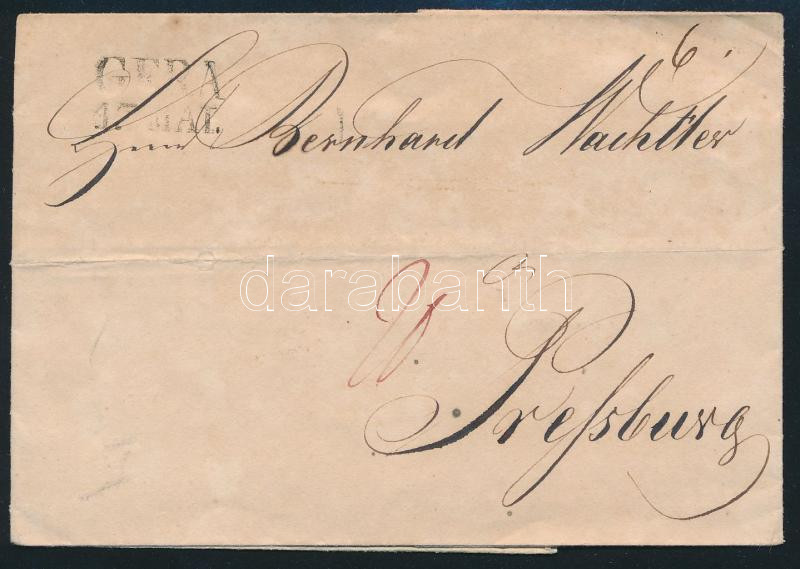 GERA
17 MAI.
6.
Herrn Bernhard Wachtler
darabanth
Preſsburg